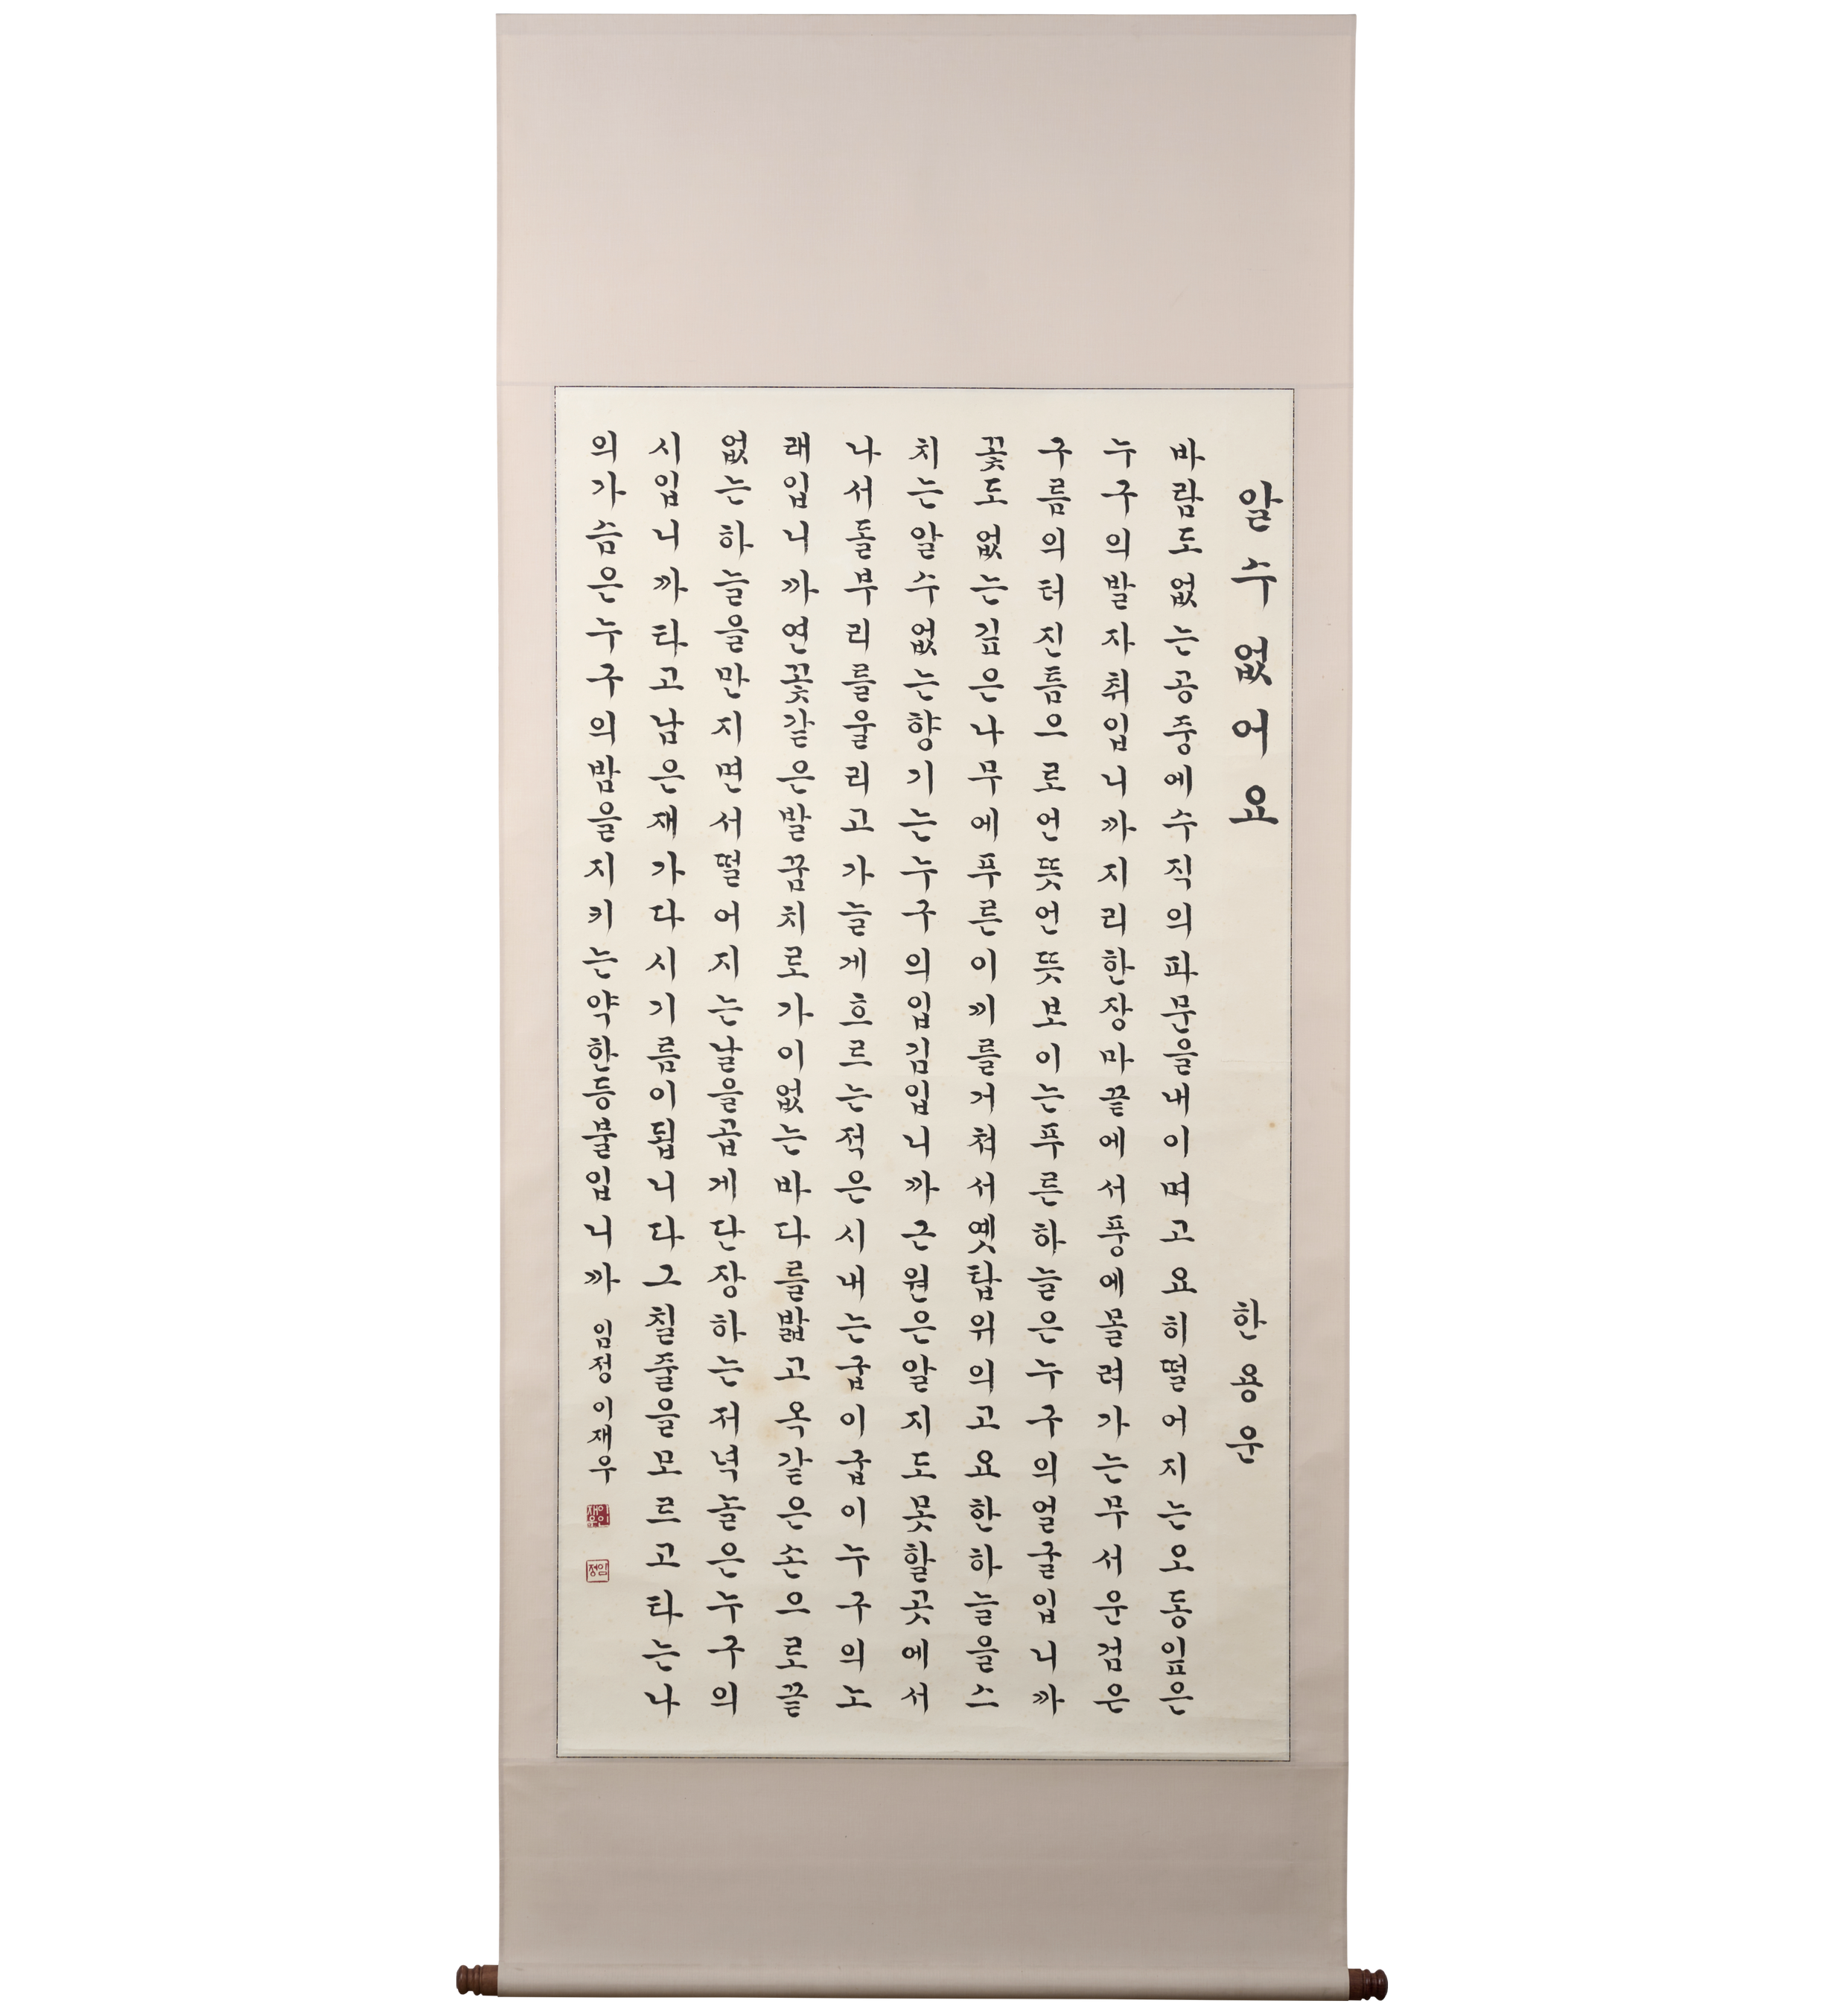 알수없어요 한용운
바람도없는공중에수직의파문을내이며고요히떨어지는오동잎은
누구의발자취입니까지리한장마끝에서풍에몰려가는무서운검은
구름의터진틈으로언뜻언뜻보이는푸른하늘은누구의얼굴입니까
꽃도없는깊은나무에푸른이끼를거쳐서옛탑위의고요한하늘을스
치는알수없는향기는누구의입김입니까근원은알지도못할곳에서
나서돌부리를울리고가늘게흐르는적은시내는굽이굽이누구의노
래입니까연꽃같은발꿈치로가이없는바다를밟고옥같은손으로끝
없는하늘을만지면서떨어지는날을곱게단장하는저녁놀은누구의
시입니까타고남은재가다시기름이됩니다그칠줄을모르고타는나
의가슴은누구의밤을지키는약한등불입니까 임정 이재우
임정